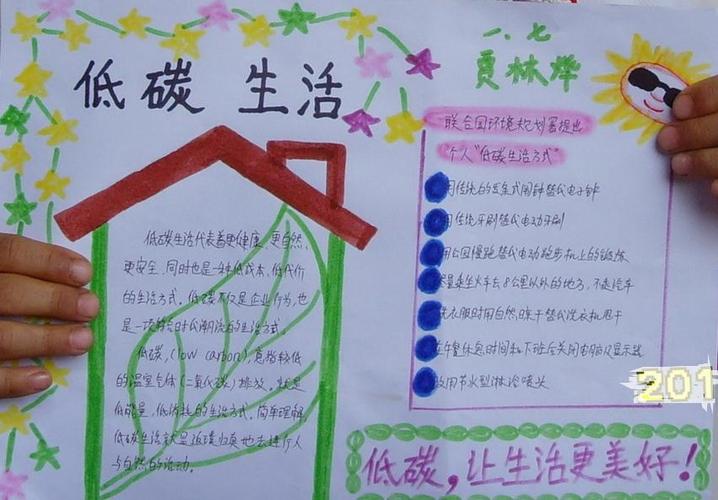 低碳 生活
一、七
夏林烨
联合国环境规划署提出
个人"低碳生活方式"
用传统的发条式闹钟替代电子钟
用传统牙刷替代电动牙刷
用公园慢跑替代电动跑步机上的锻炼
尽量乘坐火车去8公里以外的地方，不乘汽车
洗衣服时用自然晾干替代洗衣机甩干
在午餐休息时间和下班后关闭电脑及显示器
改用节水型淋浴喷头
低碳生活代表着更健康、更自然、
更安全，同时也是一种低成本、低代价
的生活方式。低碳不仅是企业行为，也
是一项符合时代潮流的生活方式。
低碳，(low carbon)，意指较低
的温室气体（二氧化碳）排放，就是
低能量、低消耗的生活方式。简单理解，
低碳生活就是返璞归真地去进行人
与自然的活动。
低碳，让生活更美好！
201